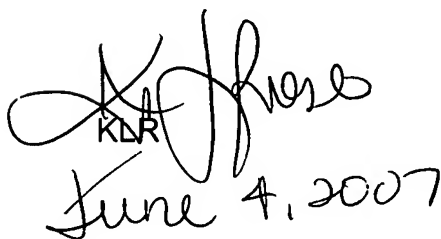 KLR
June 4, 2007